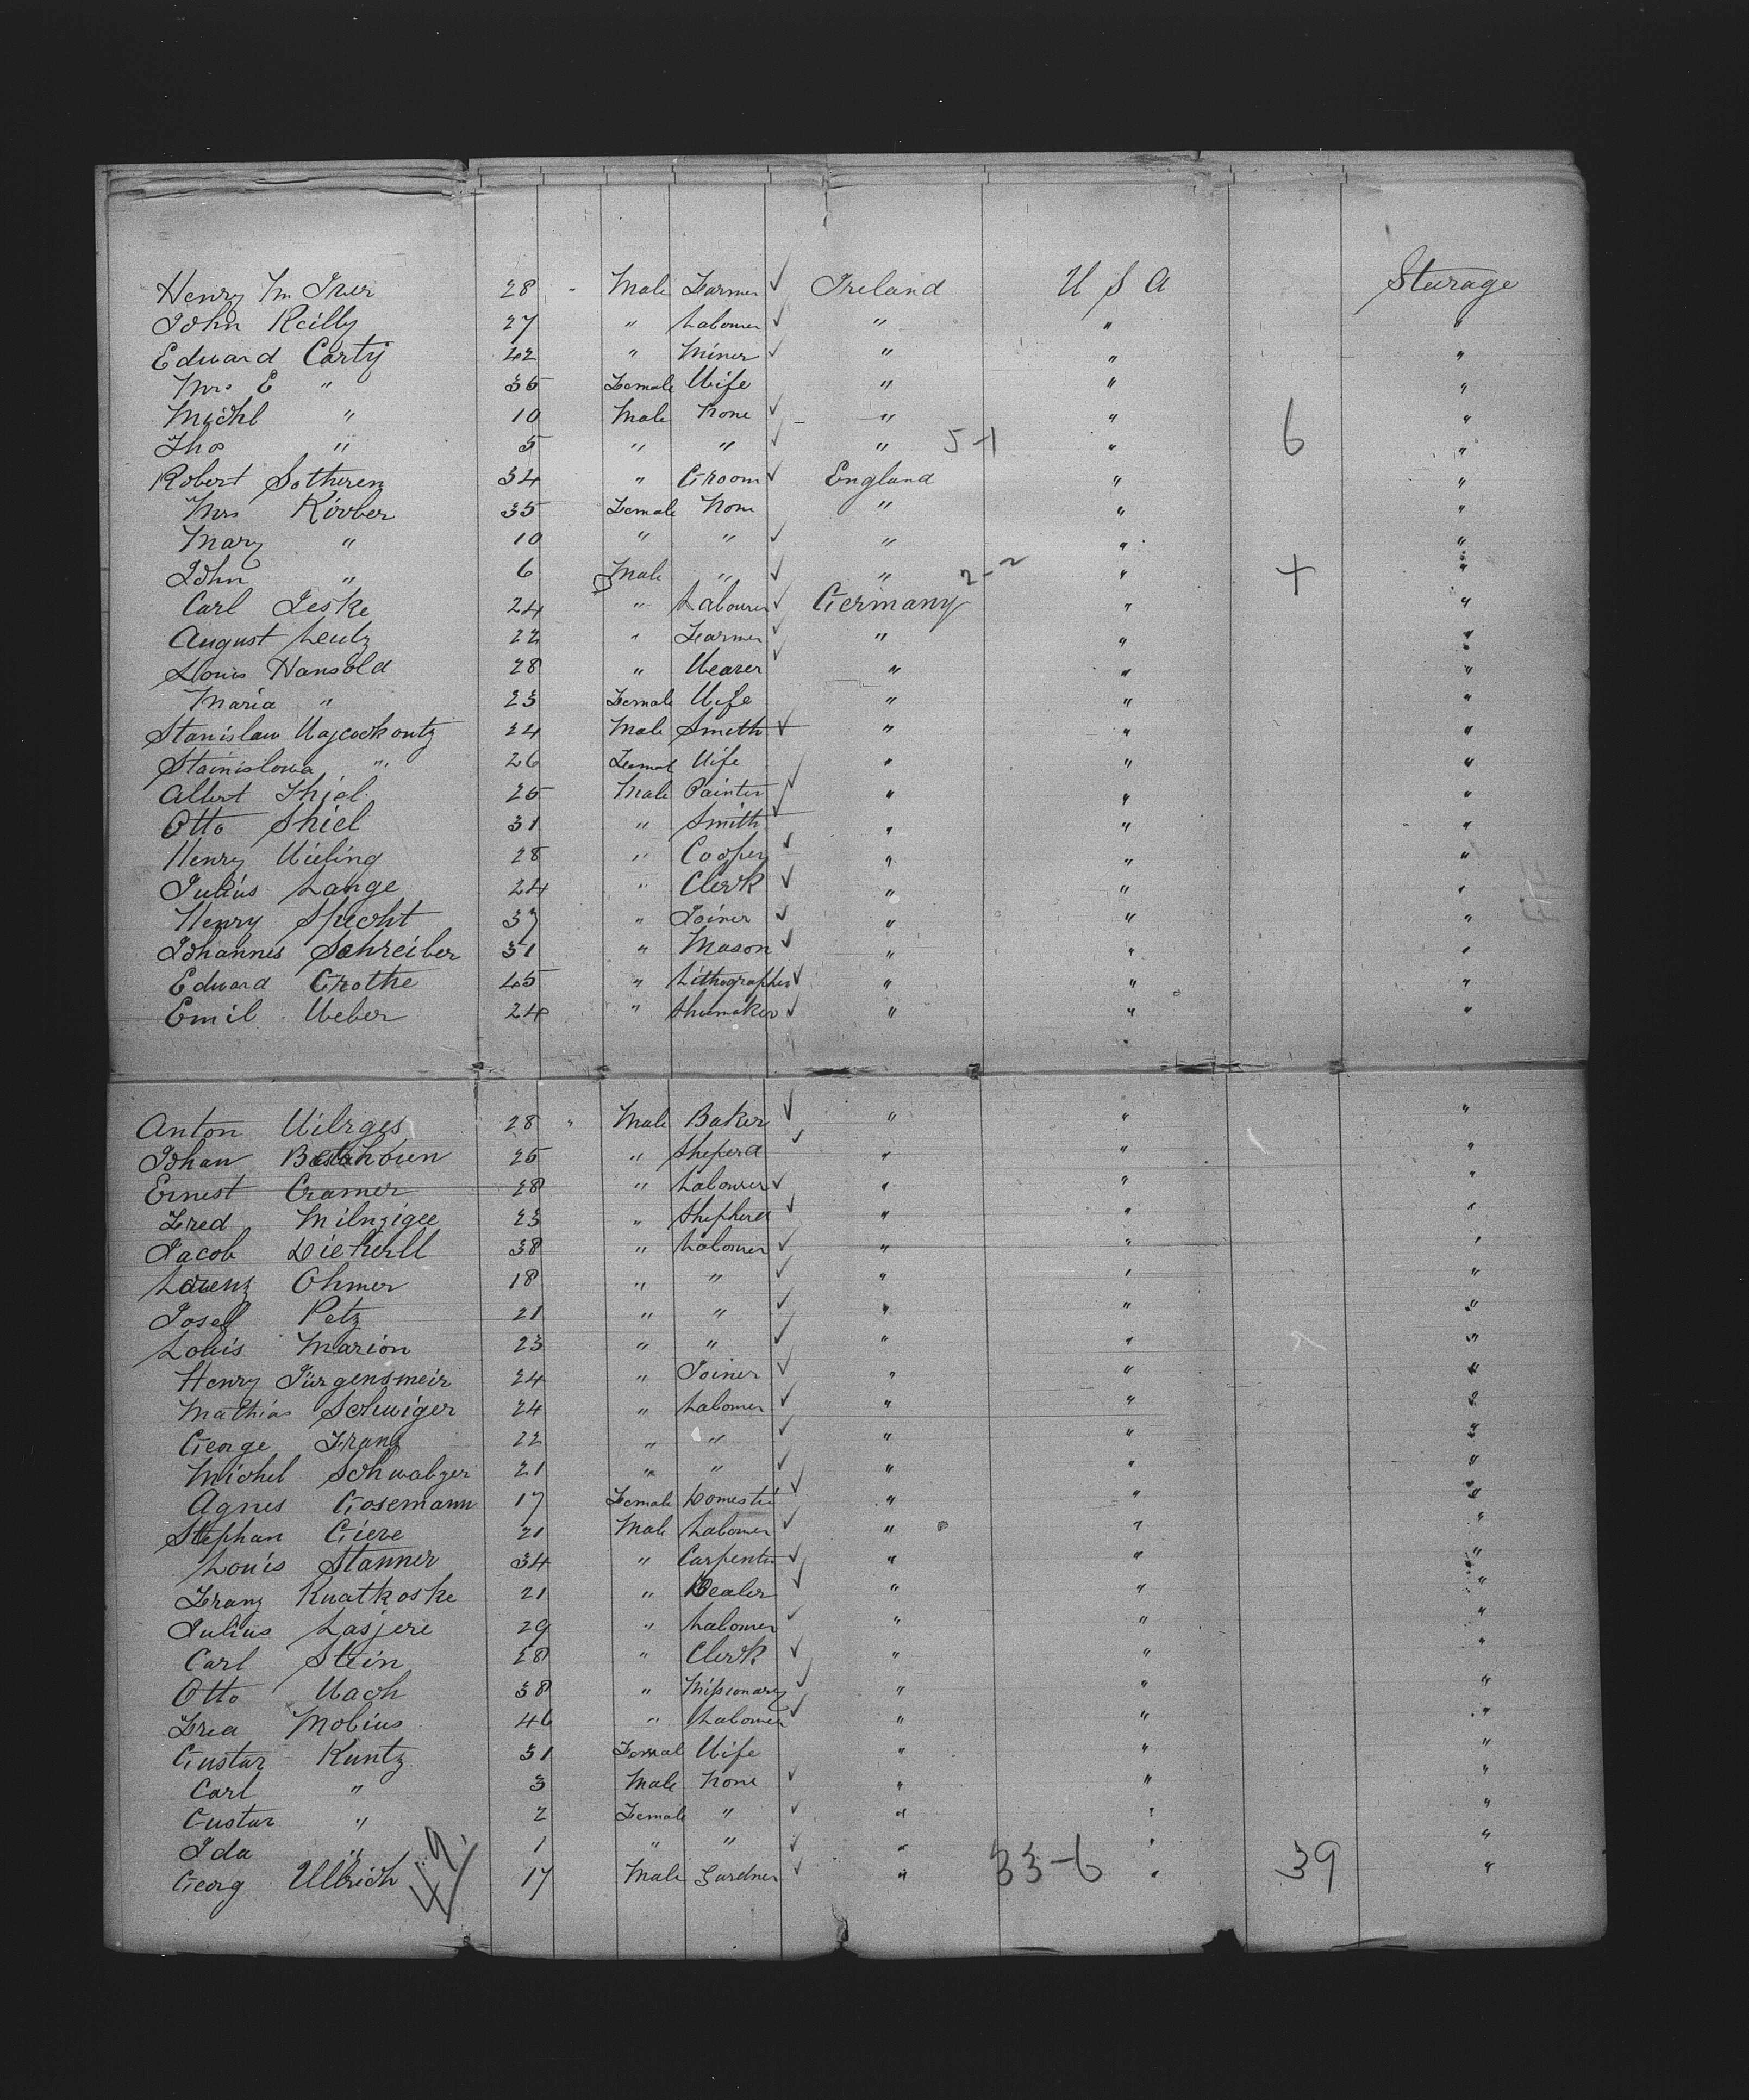 Henry Mc Iver 28 " Male Farmer ✓ Ireland U S A Sturage
John Reilly 27 " Labourer ✓ " " "
Edward Carty 42 " Miner ✓ " " "
Mrs E " 35 Female Wife " " "
Michl " 10 Male None ✓ " " "
Thos " 5 " " ✓ " 5-1 " 6 "
Robert Sotheren 34 " Groom ✓ England " "
Mrs Kirber 35 Female None " " "
Mary " 10 " " ✓ " " "
John " 6 Male " ✓ " 2-2 " "
Carl Jeske 24 " Labourer ✓ Germany " "
August Leutz 22 " Farmer ✓ " " "
Louis Hansold 28 " Weaver ✓ " " "
Maria " 23 Female Wife " " "
Stanislaw 24 Male Smith ✓ " " "
Stanislowa " 26 Female Wife " " "
Albert Thiel 25 Male Painter ✓ " " "
Otto Shiel 31 " Smith ✓ " " "
Henry Wieling 28 " Cooper ✓ " " "
Julius Lange 24 " Clerk ✓ " " "
Henry Specht 37 " Joiner ✓ " " "
Johannes Schreiber 31 " Mason ✓ " " "
Edward Grothe 45 " Lithographer ✓ " " "
Emil Weber 24 " Shumaker ✓ " " "
Anton Wilrges 28 " Male Baker ✓ " " "
Johan 25 " Sheperd ✓ " " "
Ernest Cramer 28 " Labourer ✓ " " "
Fred Milnzigee 23 " Shepherd ✓ " " "
Jacob Diekerll 38 " Labourer ✓ " " "
Lorenz Ohmer 18 " " ✓ " " "
Josef Petz 21 " " ✓ " " "
Louis Marion 23 " " ✓ " " "
Henry Jürgensmeir 24 " Joiner ✓ " " "
Mathias Schwiger 24 " Labourer ✓ " " "
George Franz 22 " " ✓ " " "
Michel Schwabzer 21 " " ✓ " " "
Agnes Gosemann 17 Female Domestic ✓ " " "
Stephan Giere 21 Male Labourer ✓ " " "
Louis Stanner 34 " Carpenter ✓ " " "
Franz Kuatkoske 21 " Dealer ✓ " " "
Julius Lasjere 29 " Labourer ✓ " " "
Carl Stein 28 " Clerk ✓ " " "
Otto Wach 38 " Missionary ✓ " " "
Fred Mobius 46 " Labourer ✓ " " "
Gustav Kuntz 31 Female Wife " " "
Carl " 3 Male None ✓ " " "
Gustav " 2 Female " ✓ " " "
Ida " 1 " " ✓ " " "
Georg Ullrich 49 17 Male Gardner ✓ " 33-6 " 39 "